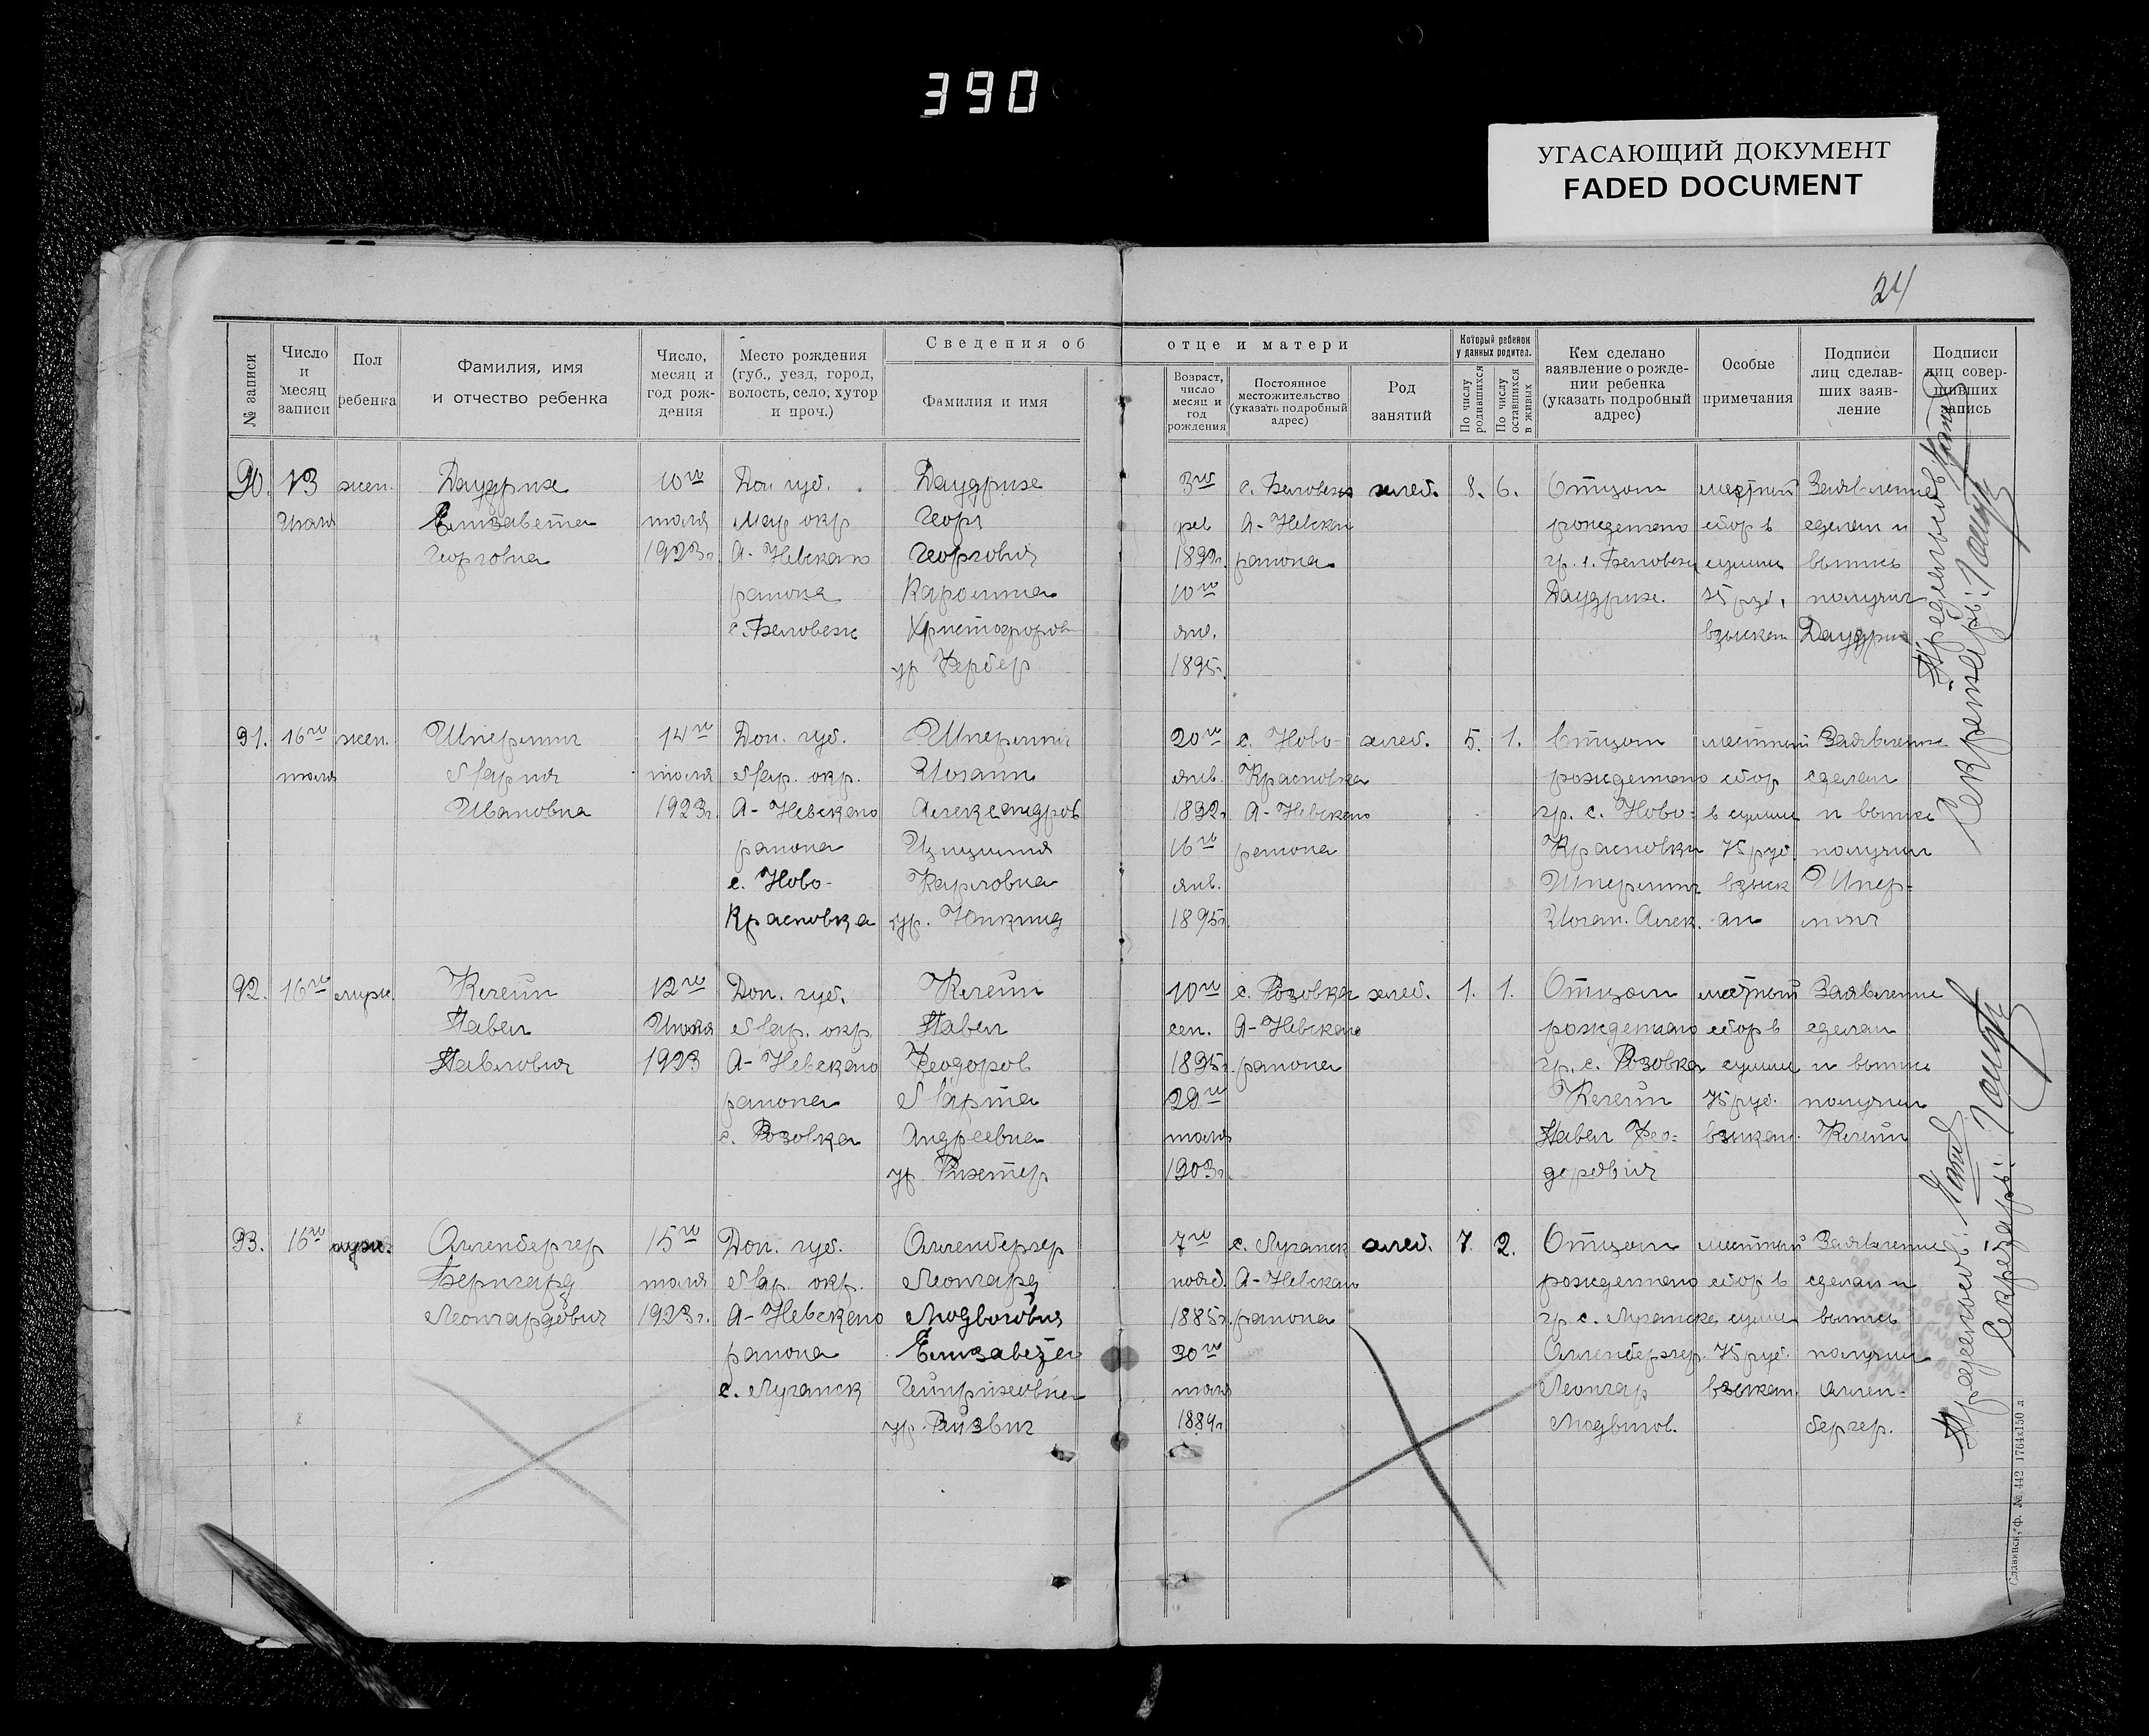 390
УГАСАЮЩИЙ ДОКУМЕНТ
FADED DOCUMENT
24
№ записи
Число и месяц записи
Пол ребенка
Фамилия, имя и отчество ребенка
Число, месяц и год рождения
Место рождения (губ., уезд, город, волость, село, хутор и проч.)
Сведения об отце и матери
Фамилия и имя
Возраст, число месяц и год рождения
Постоянное местожительство (указать подробный адрес)
Род занятий
Который ребенок у данных родител.
По числу родившихся
По числу оставшихся в живых
Кем сделано заявление о рождении ребенка (указать подробный адрес)
Особые примечания
Подписи лиц сделавших заявление
Подписи лиц совершивших запись
90. 13 жен. 10го Дон. губ. 3го с. Беловеж хлеб. 8. 6. Отцом местный Заявление
Июля Елизавета июля Мар. окр. Георг фев А-Невскаго рожденного сбор в сделал и
Георговна 1923г. А-Невскаго Георгович района гр. с. Беловеж сумме выпись
района Каролина 10го 75 руб. получил
с. Беловеж янв. взыскан
ур. Фербер 1895г.
91. 16го жен. Шперлинг 14го Дон. губ. Шперлинг 20го с. Ново- хлеб. 5. 1. Отцом местный Заявление
июля Мария июля Мар. окр. Иоганн янв. Красновка рожденного сбор сделал
Ивановна 1923г. А-Невскаго Александров 1892г. А-Невскаго гр. с. Ново- в сумме и выпись
района 16го района Красновки 75 руб. получил
с. Ново- Карловна янв. Шперлинг взыск Шпер-
Красновка 1895г. Иоган. Алек. ан линг
92. 16го муж. Клейн 12го Дон. губ. Клейн 10го с. Розовка хлеб. 1. 1. Отцом местный Заявление
Павел Июля Мар. окр. Павел сен. А-Невскаго рожденного сбор в сделал
Павлович 1923 А-Невскаго Феодоров 1895г. района гр. с. Розовка сумме и выпись
района Марта 29го Клейн 75 руб. получил
с. Розовка Андреевна июля Павел Фео- взыскан. Клейн
ур. Рихтер 1903г. дорович
93. 16го муж. Алленбергер 15го Дон. губ. Алленбергер 7го с. Луганск хлеб. 7. 2. Отцом местный Заявление
Бернгард июля Мар. окр. Леонгард нояб. А-Невскаго рожденного сбор в сделал и
Леонгардович 1923г. А-Невскаго Людвигович 1885г. района гр. с. Луганска сумме выпись
района Елизавета 30го Алленбергер 75 руб. получил
с. Луганск Гейнриховна июля Леонгар взыскан. Аллен-
1884г. Людвигов. бергер.
Председатель:
Секретарь:
Председатель:
Секретарь:
Славянск, ф. № 442 1764х150 л